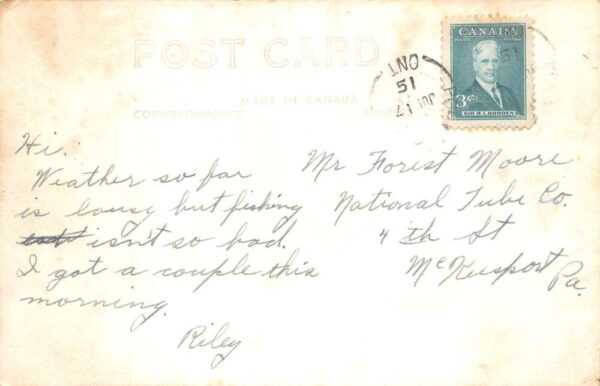 POST CARD
MADE IN CANADA
CORRESPONDENCE
CANADA
3
SIR R.L. BORDEN
ONT
51
JUL 17
Hi.
Weather so far
is lousy but fishing
isn't so bad.
I got a couple this
morning.
Riley
Mr Forest Moore
National Tube Co.
4 th St
McKeesport Pa.